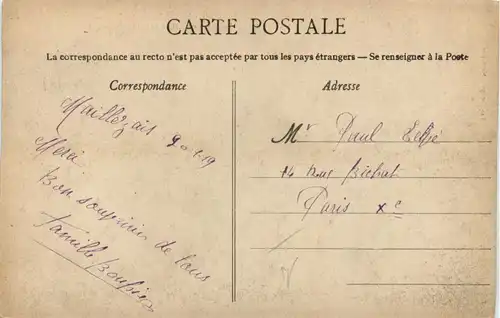 CARTE POSTALE
La correspondance au recto n'est pas acceptée par tous les pays étrangers — Se renseigner à la Poste
Correspondance
Adresse
Maillezais
Merci
Bon souvenir de tous
Famille
Mr Paul
14 Rue Bichat
Paris Xe